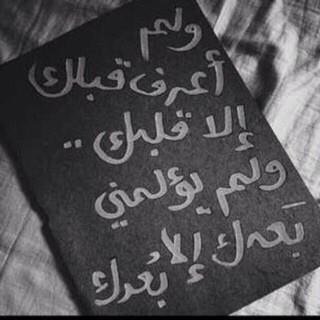 ولم
أعرف قبلك
إلا قلبك ..
ولم يؤلمني
بَعدك إلا بُعدك